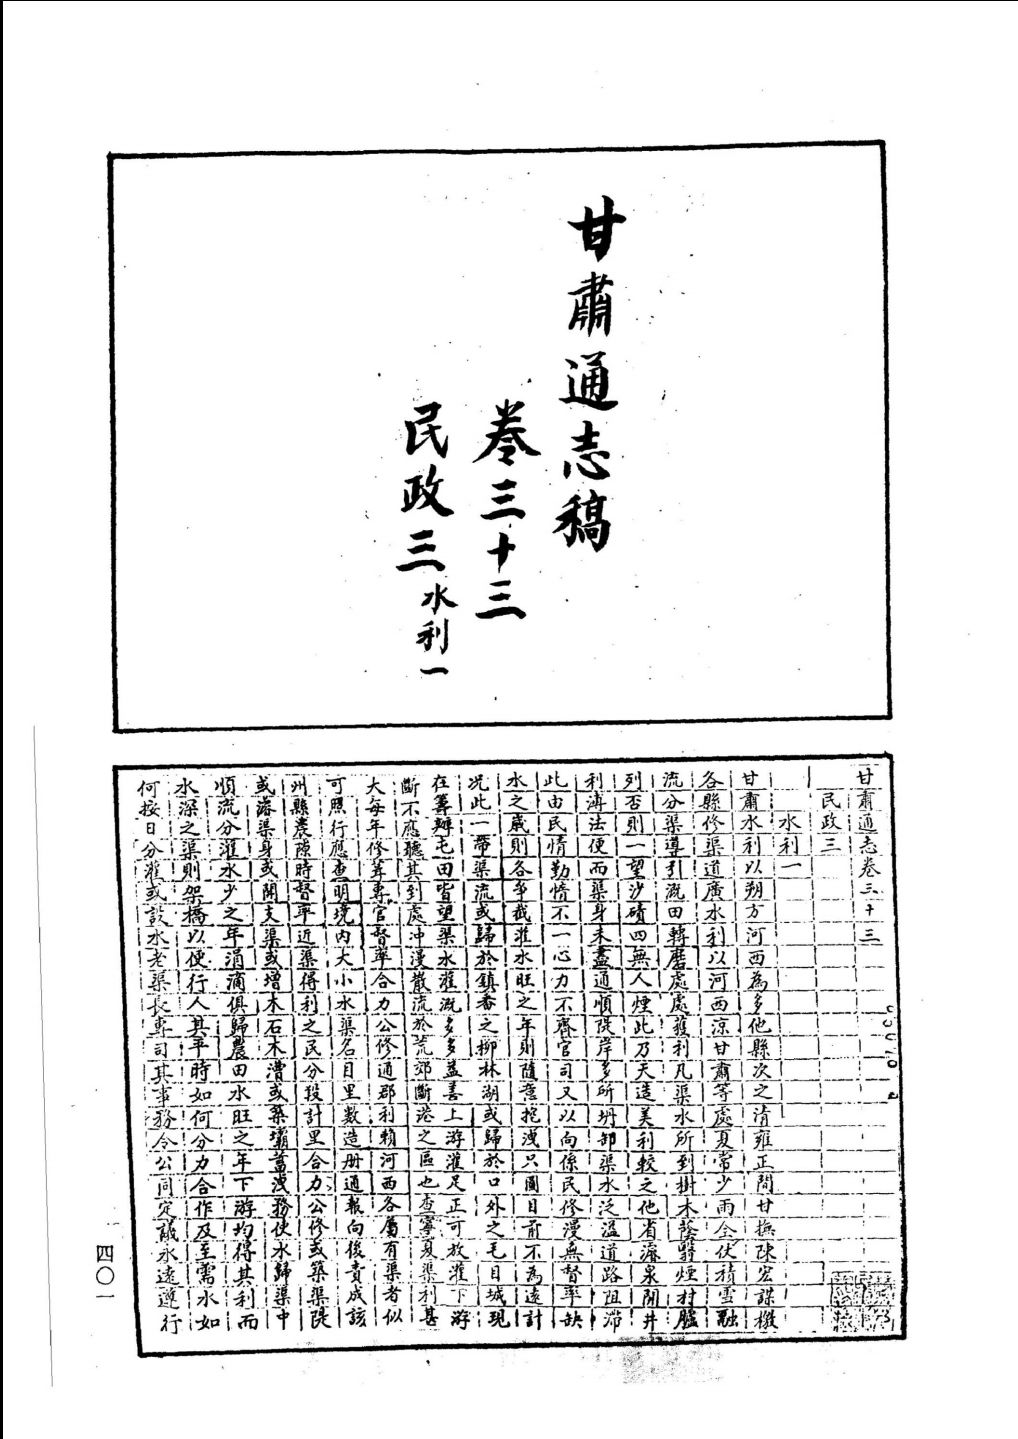 甘肅通志稿
卷三十三
民政三水利一
甘肅通志卷三十三
民政三
水利一
甘肅水利以朔方河西為多他縣次之清雍正間甘撫陳宏謀檄
各縣修渠道廣水利以河西涼甘肅等處夏常少雨全伏積雪融
流分渠導引溉田轉磨處處獲利凡渠水所到樹木蔭翳煙村臚
列否則一望沙磧四無人煙此乃天造美利較之他省濬泉開井
利溥法便而渠身未盡通順隄岸多所坍卸渠水泛溢道路阻滯
此由民情勤惰不一心力不齊官司又以向係民修漫無督率缺
水之歲則各爭截灌水旺之年則隨意挖洩只圖目前不為遠計
况此一帶渠流或歸於鎮番之柳林湖或歸於口外之毛目城現
在籌辦屯田皆望渠水灌溉多多益善上游灌足正可放灌下游
斷不應聽其到處沖漫散流於荒郊斷港之區也查寧夏渠利甚
大每年修葺專官督率合力公修通郡利賴河西各屬有渠者似
可照行應查明境內大小水渠名目里數造册通報向後責成該
州縣農隙時督率近渠得利之民分投計里合力公修或築渠隄
或濬渠身或開支渠或增木石木漕或築壩蓄洩務使水歸渠中
順流分灌水少之年涓滴俱歸農田水旺之年下游均得其利而
水深之渠則架橋以便行人其平時如何分力合作及至需水如
何按日分灌或設水老渠長專司其事務令公同定議永遠遵行
一
四〇一